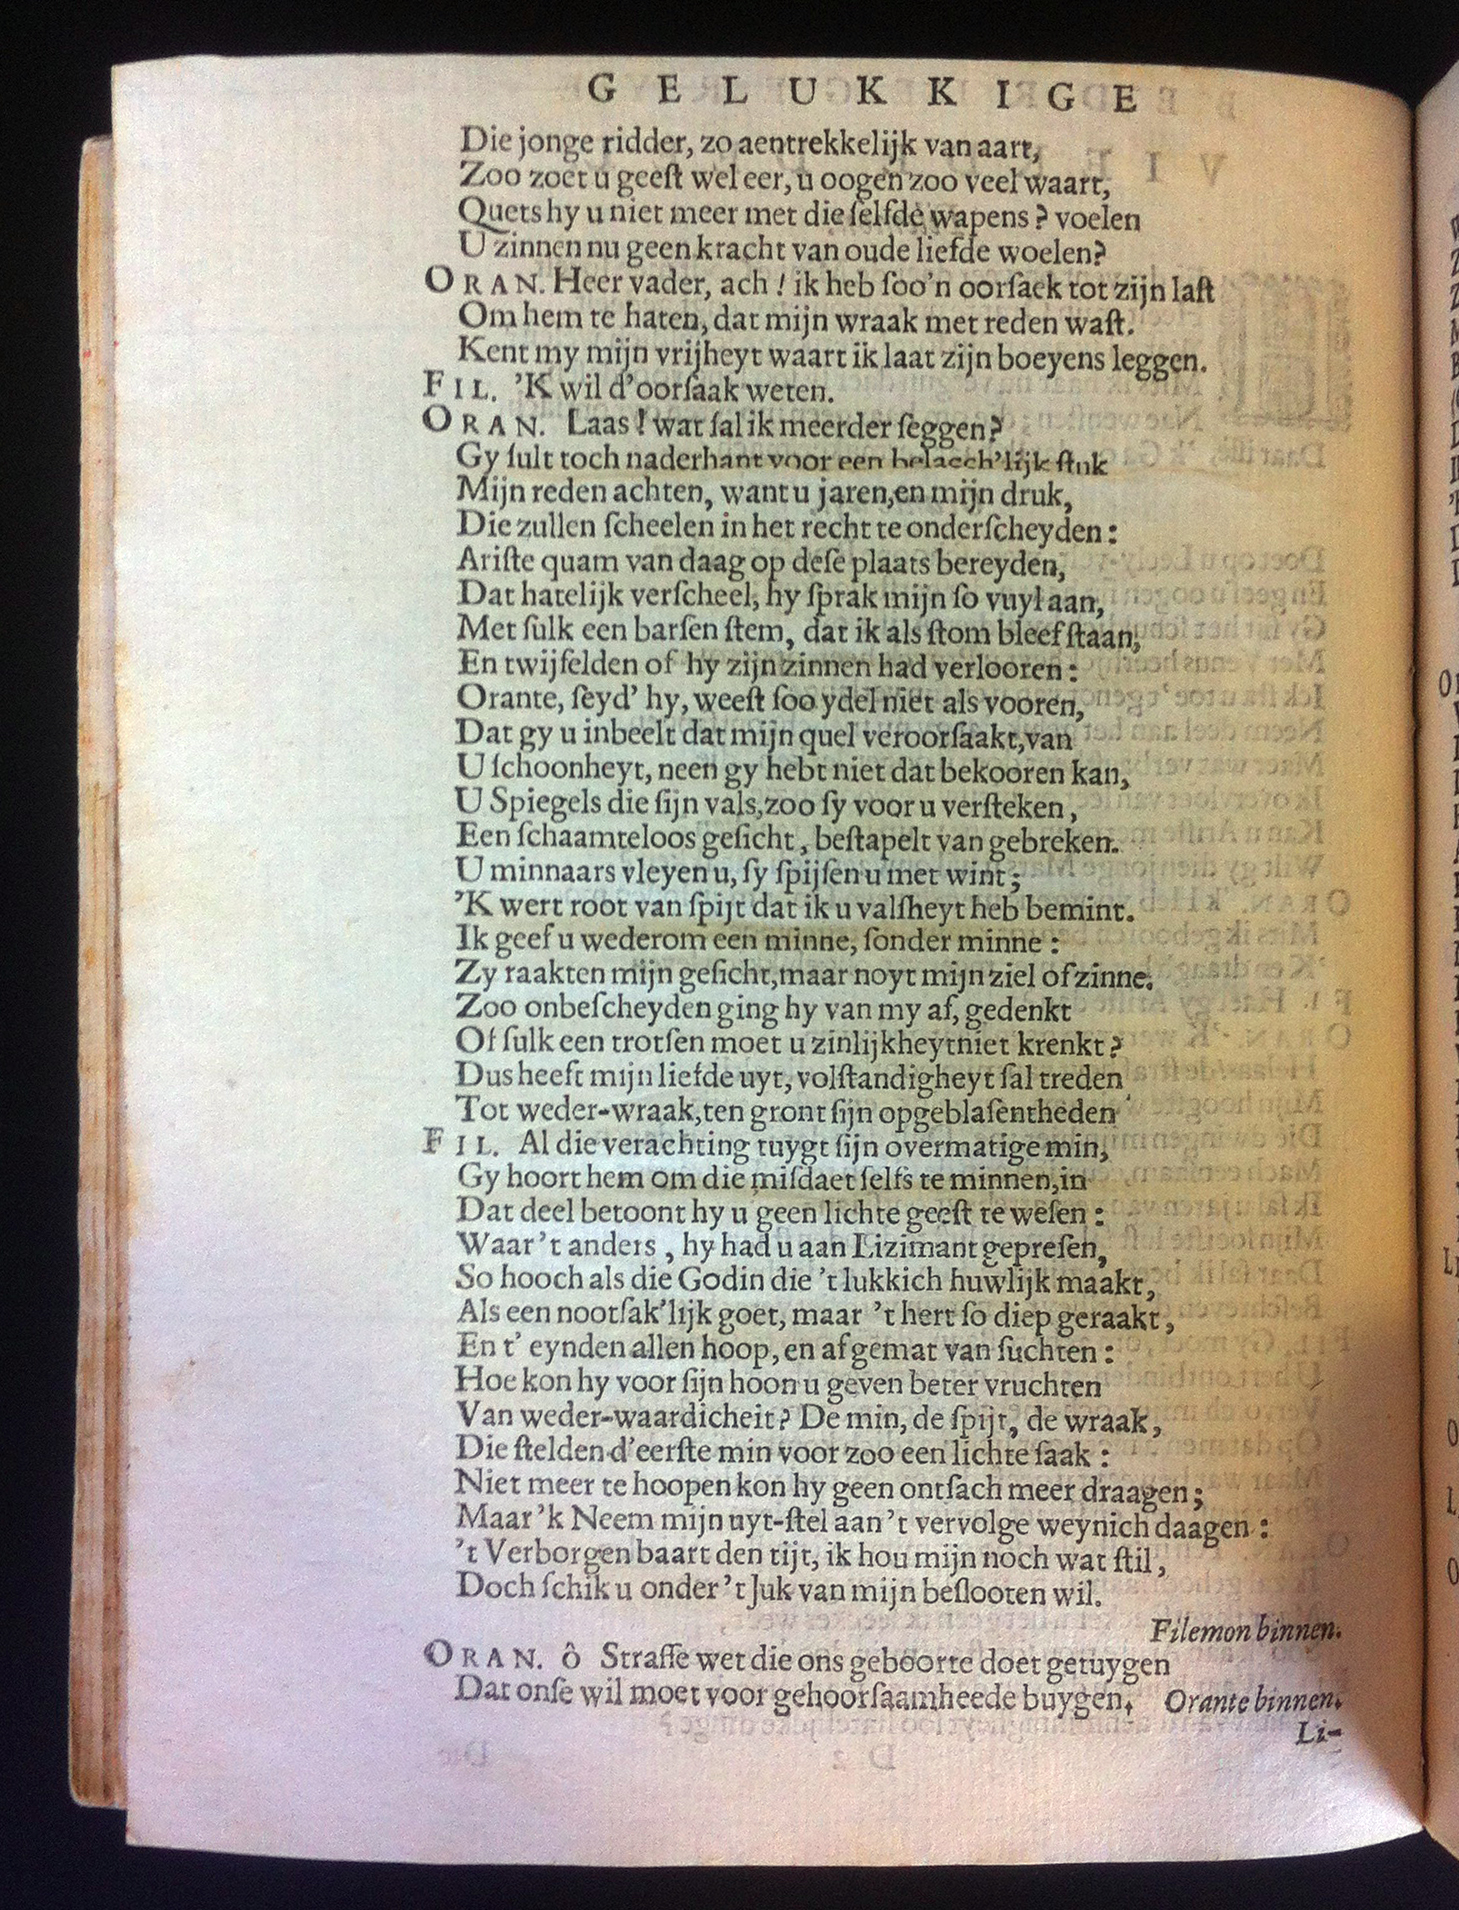 GELUKKIGE
Die jonge ridder, zo aentrekkelijk van aart,
Zoo zoet u geeſt wel eer, u oogen zoo veel waart,
Quets hy u niet meer met die ſelfde wapens? voelen
U zinnen nu geen kracht van oude liefde woelen?
ORAN. Heer vader, ach! ik heb ſoo'n oorſaek tot zijn laſt
Om hem te haten, dat mijn wraak met reden waſt.
Kent my mijn vrijheyt waart ik laat zijn boeyens leggen.
FIL. 'K wil d'oorſaak weten.
ORAN. Laas! wat ſal ik meerder ſeggen?
Gy ſult toch naderhant voor een belacch'lijk ſtuk
Mijn reden achten, want u jaren, en mijn druk,
Die zullen ſcheelen in het recht te onderſcheyden:
Ariſte quam van daag op deſe plaats bereyden,
Dat hatelijk verſcheel, hy ſprak mijn ſo vuyl aan,
Met ſulk een barſen ſtem, dat ik als ſtom bleef ſtaan,
En twijfelden of hy zijn zinnen had verlooren:
Orante, ſeyd' hy, weeſt ſoo ydel niet als vooren,
Dat gy u inbeelt dat mijn quel veroorſaakt, van
U ſchoonheyt, neen gy hebt niet dat bekooren kan,
U Spiegels die ſijn vals, zoo ſy voor u verſteken,
Een ſchaamteloos geſicht, beſtapelt van gebreken.
U minnaars vleyen u, ſy ſpijſen u met wint;
'K wert root van ſpijt dat ik u valſheyt heb bemint.
Ik geef u wederom een minne, ſonder minne:
Zy raakten mijn geſicht, maar noyt mijn ziel of zinne.
Zoo onbeſcheyden ging hy van my af, gedenkt
Of ſulk een trotſen moet u zinlijkheyt niet krenkt?
Dus heeft mijn liefde uyt, volſtandigheyt ſal treden
Tot weder-wraak, ten gront ſijn opgeblaſentheden
FIL. Al die verachting tuygt ſijn overmatige min,
Gy hoort hem om die miſdaet ſelfs te minnen, in
Dat deel betoont hy u geen lichte geeſt te weſen:
Waar 't anders, hy had u aan Lizimant gepreſen,
So hooch als die Godin die 't lukkich huwlijk maakt,
Als een nootſak'lijk goet, maar 't hert ſo diep geraakt,
En t' eynden allen hoop, en afgemat van ſuchten:
Hoe kon hy voor ſijn hoon u geven beter vruchten
Van weder-waardicheit? De min, de ſpijt, de wraak,
Die ſtelden d'eerſte min voor zoo een lichte ſaak:
Niet meer te hoopen kon hy geen ontſach meer draagen;
Maar 'k Neem mijn uyt-ſtel aan 't vervolge weynich daagen:
't Verborgen baart den tijt, ik hou mijn noch wat ſtil,
Doch ſchik u onder 't Juk van mijn beſlooten wil.
Filemon binnen.
ORAN. ô Straſſe wet die ons geboorte doet getuygen
Dat onſe wil moet voor gehoorſaamheede buygen. Orante binnen.
Li-